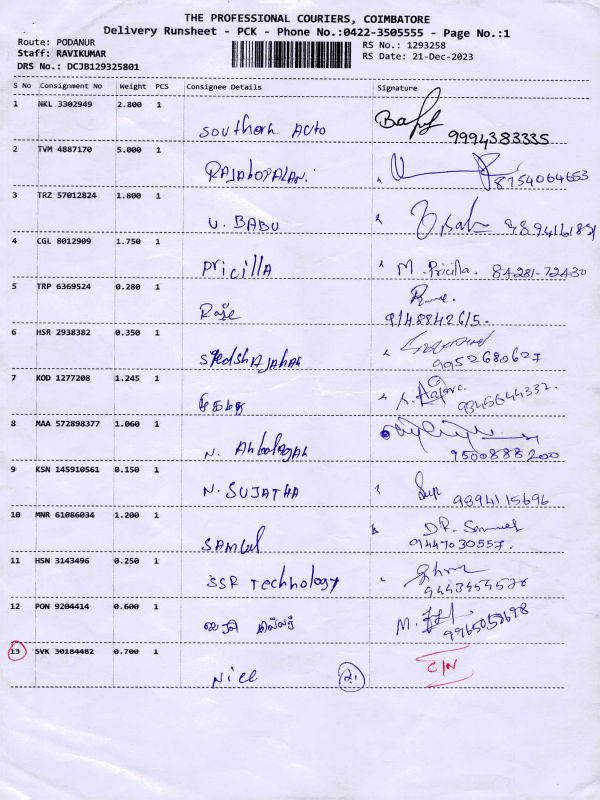 THE PROFESSIONAL COURIERS, COIMBATORE
Delivery Runsheet - PCK - Phone No.:0422-3505555 - Page No.:1
Route: PODANUR
RS No.: 1293258
Staff: RAVIKUMAR
RS Date: 21-Dec-2023
DRS No.: DCJB129325801
S No Consignment No Weight PCS Consignee Details Signature
1 NKL 3302949 2.800 1
Southern Auto 9994383335
2 TVM 4887170 5.000 1
RAJAGOPALAN. 8754064653
3 TRZ 57012824 1.800 1
V. BABU
4 CGL 8012909 1.750 1
PRICILLA M. Pricilla. 84281-72430
5 TRP 6369524 0.280 1
9148842615.
6 HSR 2938382 0.350 1
9952680627
7 KOD 1277208 1.245 1
9345644332.
8 MAA 572898377 1.060 1
N. 9500888200
9 KSN 145910561 0.150 1
N. SUJATHA 9894115696
10 MNR 61086034 1.200 1
DR. Samuel
SAMUEL 9447030557.
11 HSN 3143496 0.250 1
SSR Technology
12 PON 9204414 0.600 1
M.
13 SVK 30184482 0.700 1
C/N
Nice